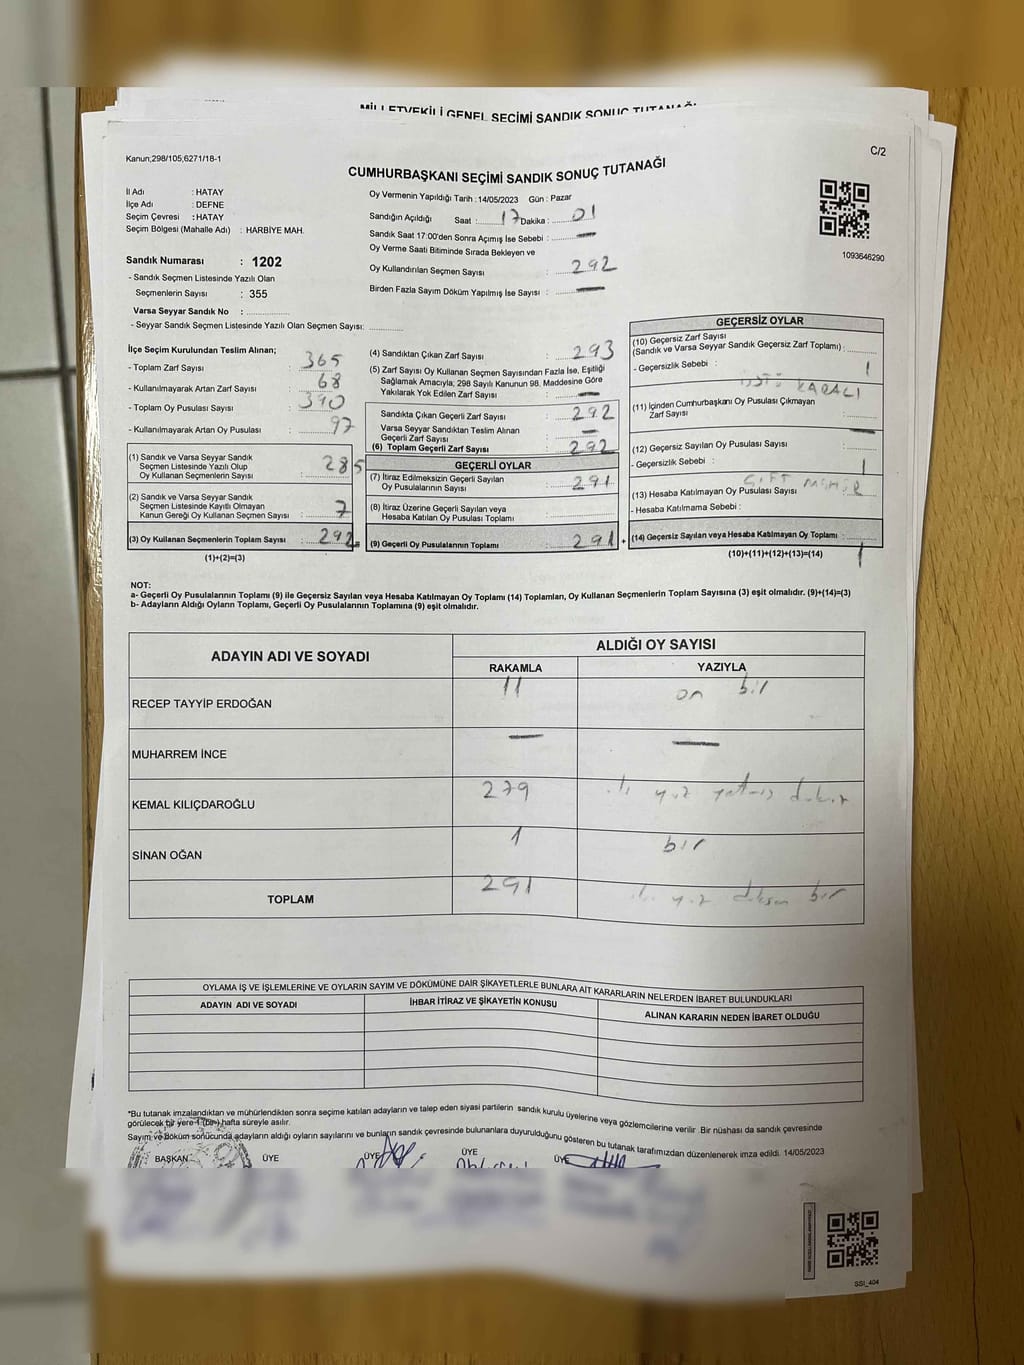 MİLLETVEKİLİ GENEL SEÇİMİ SANDIK SONUÇ TUTANAĞI
Kanun;298/105,6271/18-1
C/2
CUMHURBAŞKANI SEÇİMİ SANDIK SONUÇ TUTANAĞI
İl Adı : HATAY
İlçe Adı : DEFNE
Seçim Çevresi : HATAY
Seçim Bölgesi (Mahalle Adı) : HARBİYE MAH.
Sandık Numarası : 1202
- Sandık Seçmen Listesinde Yazılı Olan
Seçmenlerin Sayısı : 355
Varsa Seyyar Sandık No :
- Seyyar Sandık Seçmen Listesinde Yazılı Olan Seçmen Sayısı:
Oy Vermenin Yapıldığı Tarih : 14/05/2023 Gün : Pazar
Sandığın Açıldığı Saat : 17 Dakika : 01
Sandık Saat 17:00'den Sonra Açımış İse Sebebi : —
Oy Verme Saati Bitiminde Sırada Bekleyen ve
Oy Kullandırılan Seçmen Sayısı : 292
Birden Fazla Sayım Döküm Yapılmış İse Sayısı : —
1093646290
İlçe Seçim Kurulundan Teslim Alınan;
- Toplam Zarf Sayısı : 365
- Kullanılmayarak Artan Zarf Sayısı : 68
- Toplam Oy Pusulası Sayısı : 390
- Kullanılmayarak Artan Oy Pusulası : 97
(1) Sandık ve Varsa Seyyar Sandık
Seçmen Listesinde Yazılı Olup
Oy Kullanan Seçmenlerin Sayısı : 285
(2) Sandık ve Varsa Seyyar Sandık
Seçmen Listesinde Kayıtlı Olmayan
Kanun Gereği Oy Kullanan Seçmen Sayısı : 7
(3) Oy Kullanan Seçmenlerin Toplam Sayısı : 292
(1)+(2)=(3)
(4) Sandıktan Çıkan Zarf Sayısı : 293
(5) Zarf Sayısı Oy Kullanan Seçmen Sayısından Fazla İse, Eşitliği
Sağlamak Amacıyla; 298 Sayılı Kanunun 98. Maddesine Göre
Yakılarak Yok Edilen Zarf Sayısı : —
Sandıkta Çıkan Geçerli Zarf Sayısı : 292
Varsa Seyyar Sandıktan Teslim Alınan
Geçerli Zarf Sayısı : —
(6) Toplam Geçerli Zarf Sayısı : 292
GEÇERLİ OYLAR
(7) İtiraz Edilmeksizin Geçerli Sayılan
Oy Pusulalarının Sayısı : 291
(8) İtiraz Üzerine Geçerli Sayılan veya
Hesaba Katılan Oy Pusulası Toplamı :
(9) Geçerli Oy Pusulalarının Toplamı : 291
GEÇERSİZ OYLAR
(10) Geçersiz Zarf Sayısı
(Sandık ve Varsa Seyyar Sandık Geçersiz Zarf Toplamı) :
- Geçersizlik Sebebi : 1
ÜSTÜ KARALI
(11) İçinden Cumhurbaşkanı Oy Pusulası Çıkmayan
Zarf Sayısı : —
(12) Geçersiz Sayılan Oy Pusulası Sayısı :
- Geçersizlik Sebebi : 1
ÇİFT MÜHÜR
(13) Hesaba Katılmayan Oy Pusulası Sayısı :
- Hesaba Katılmama Sebebi :
+ (14) Geçersiz Sayılan veya Hesaba Katılmayan Oy Toplamı : 1
(10)+(11)+(12)+(13)=(14)
NOT:
a- Geçerli Oy Pusulalarının Toplamı (9) ile Geçersiz Sayılan veya Hesaba Katılmayan Oy Toplamı (14) Toplamları, Oy Kullanan Seçmenlerin Toplam Sayısına (3) eşit olmalıdır. (9)+(14)=(3)
b- Adayların Aldığı Oyların Toplamı, Geçerli Oy Pusulalarının Toplamına (9) eşit olmalıdır.
ADAYIN ADI VE SOYADI
ALDIĞI OY SAYISI
RAKAMLA YAZIYLA
RECEP TAYYİP ERDOĞAN 11 on bir
MUHARREM İNCE — —
KEMAL KILIÇDAROĞLU 279 iki yüz yetmiş dokuz
SİNAN OĞAN 1 bir
TOPLAM 291 iki yüz doksan bir
OYLAMA İŞ VE İŞLEMLERİNE VE OYLARIN SAYIM VE DÖKÜMÜNE DAİR ŞİKAYETLERLE BUNLARA AİT KARARLARIN NELERDEN İBARET BULUNDUKLARI
ADAYIN ADI VE SOYADI İHBAR İTİRAZ VE ŞİKAYETİN KONUSU ALINAN KARARIN NEDEN İBARET OLDUĞU
*Bu tutanak imzalandıktan ve mühürlendikten sonra seçime katılan adayların ve talep eden siyasi partilerin sandık kurulu üyelerine veya gözlemcilerine verilir .Bir nüshası da sandık çevresinde
görülecek bir yere 1 (bir) hafta süreyle asılır.
Sayım ve Döküm sonucunda adayların aldığı oyların sayılarını ve bunların sandık çevresinde bulunanlara duyurulduğunu gösteren bu tutanak tarafımızdan düzenlenerek imza edildi. 14/05/2023
BAŞKAN ÜYE ÜYE ÜYE ÜYE
SSI_404